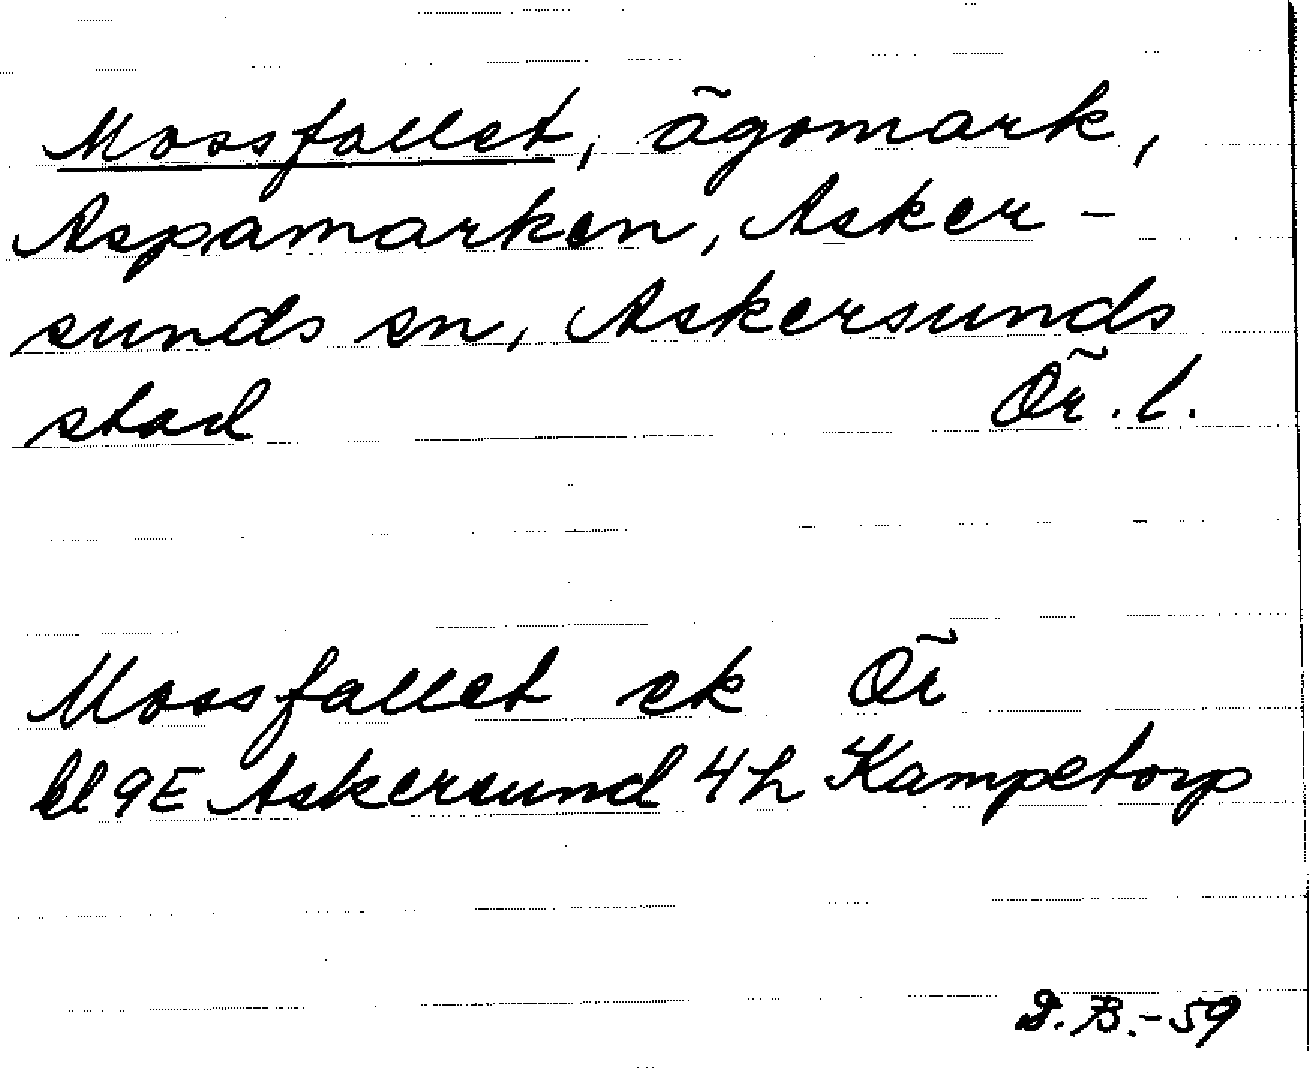 Mossfallet, ägomark,
Aspamarken, Asker-
sunds sn, Askersunds
stad Ör. l.
Mossfallet ek Ör
bl 9E Askersund 4h Kampetorp
D.B.-59